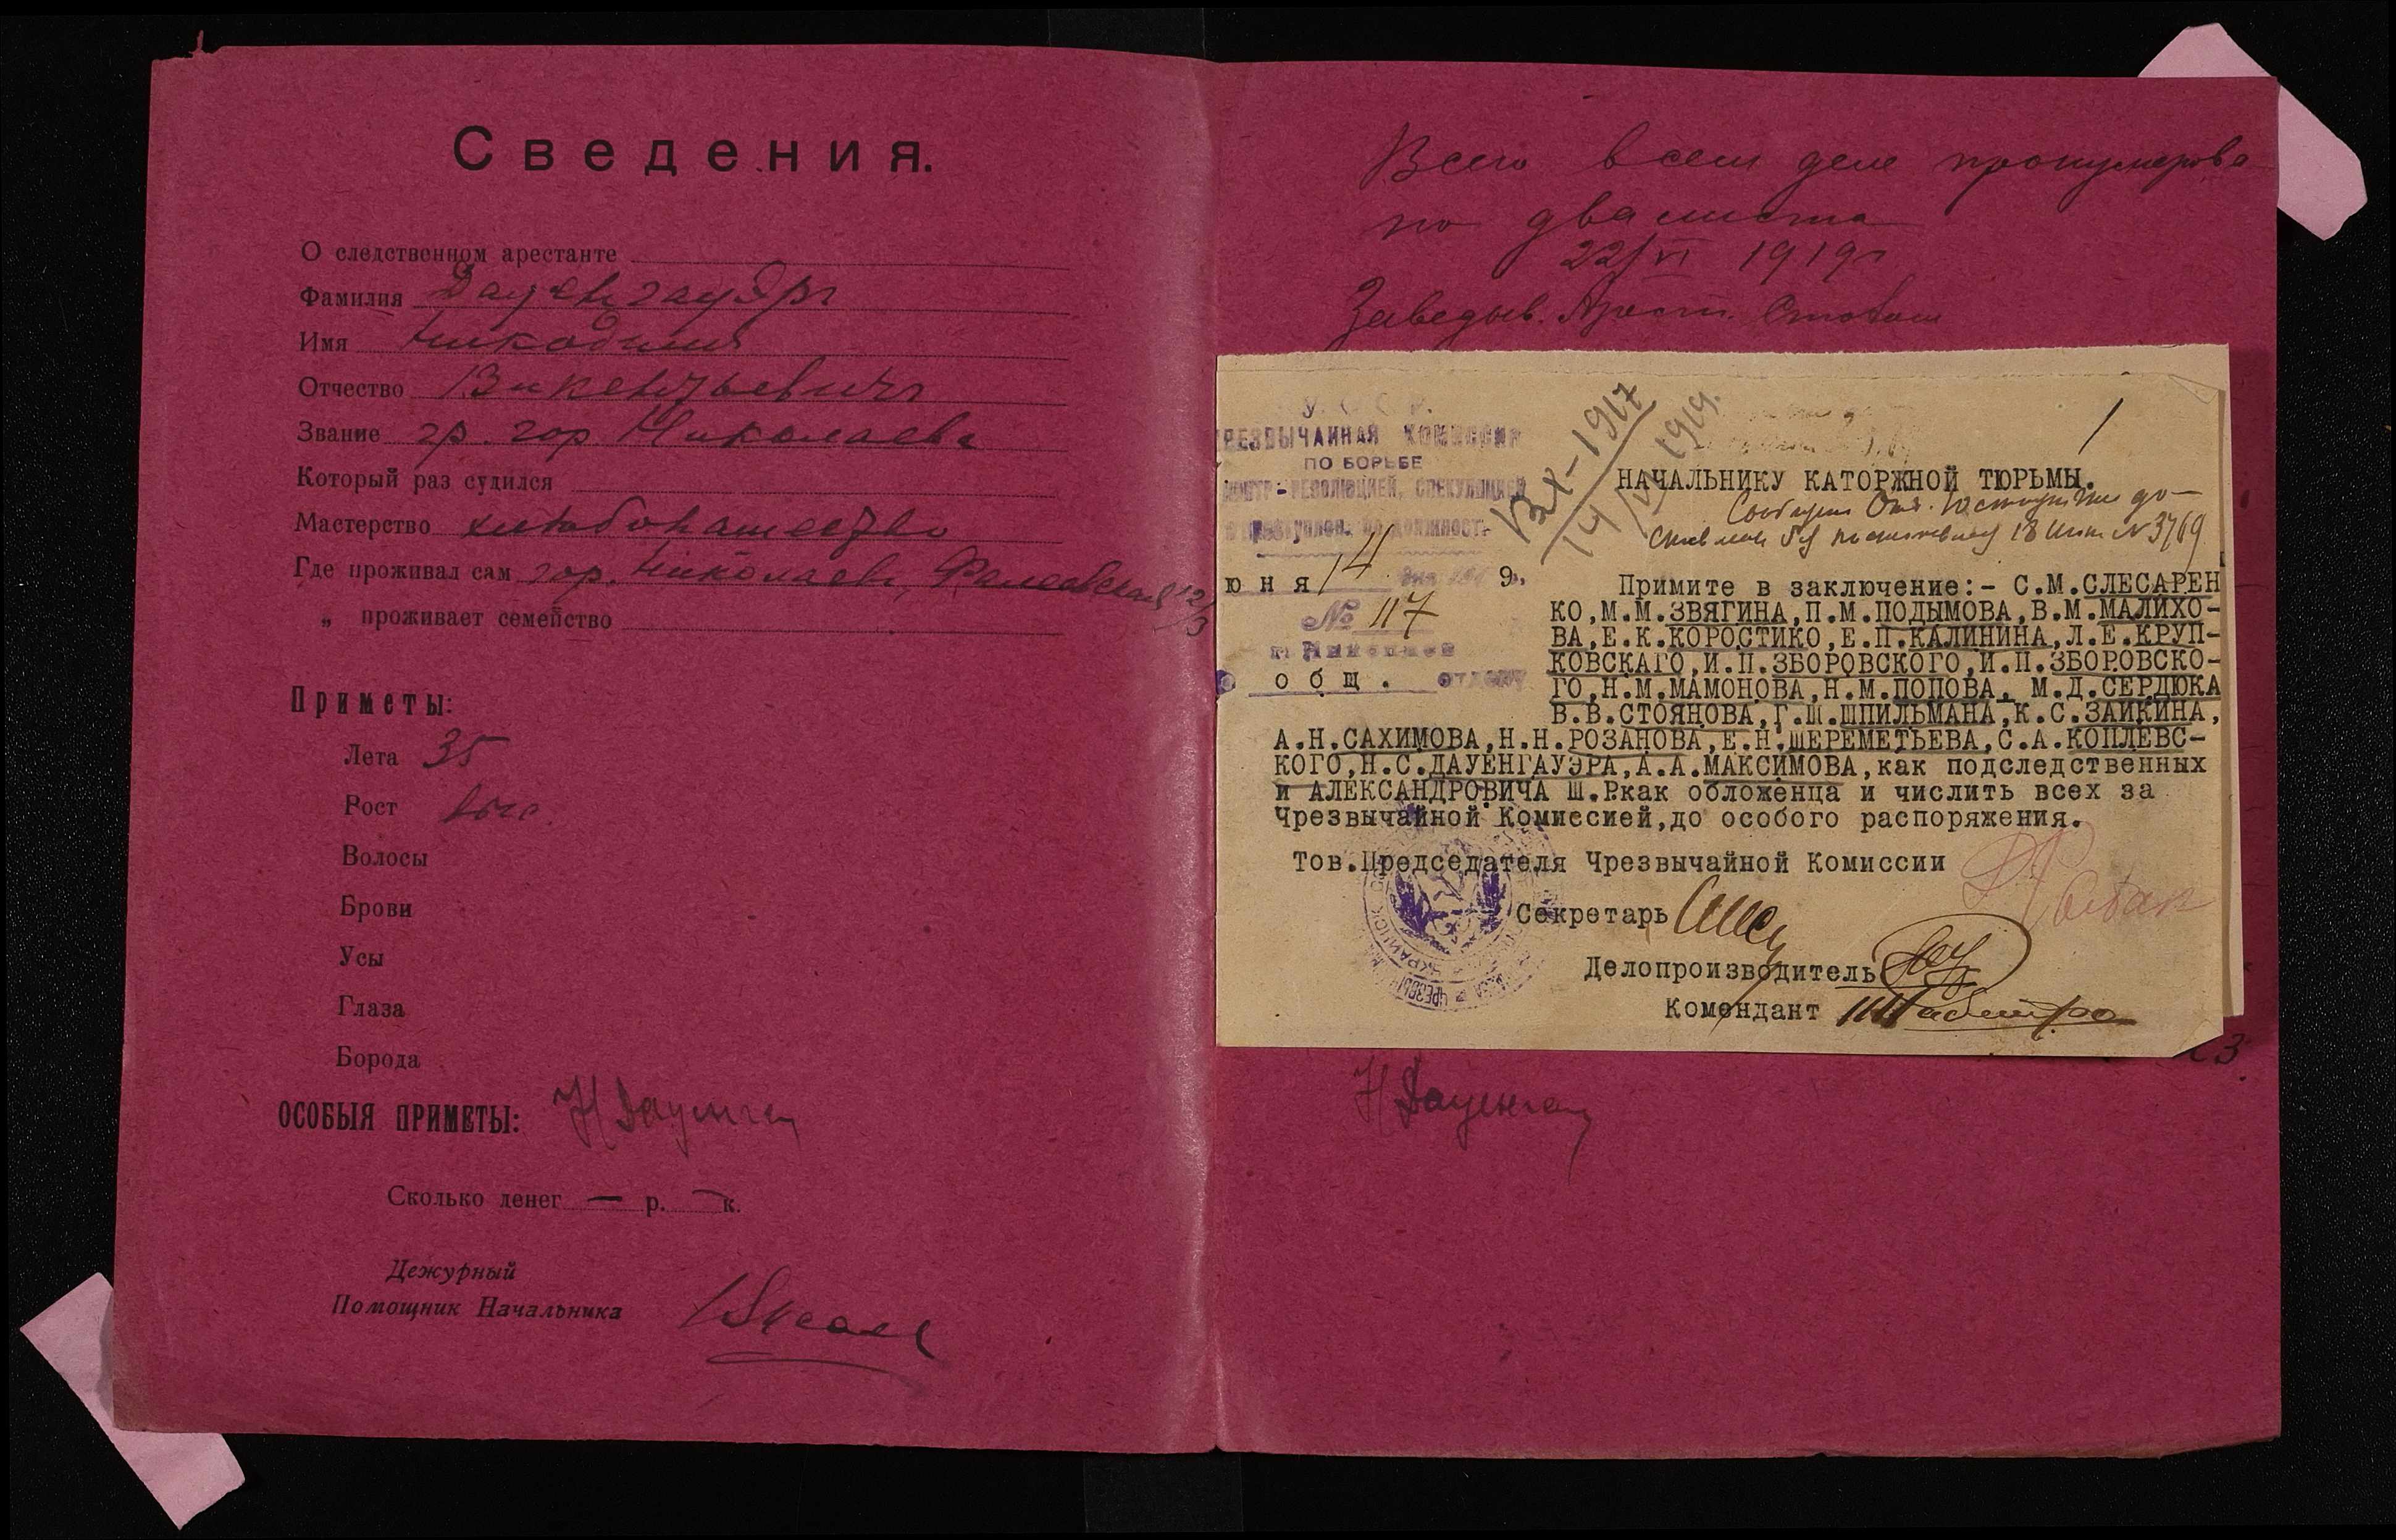 Сведения.
О следственном арестанте
Фамилия Дауенгауэръ
Имя Никодимъ
Отчество Викентьевичъ
Звание гр. гор. Николаева
Который раз судился
Мастерство хлебопашество
Где проживал сам гор. Николаевъ, 12/3
„ проживает семейство
Приметы:
Лета 35
Рост
Волосы
Брови
Усы
Глаза
Борода
ОСОБЫЯ ПРИМЕТЫ: Н Дауенгау
Сколько денег — р. — к.
Дежурный
Помощник Начальника
Всего в сем деле пронумерова
но два листа
22/VI 1919г
Заведыв. Арест. Столом
У. С. С. Р.
РЕЗВЫЧАЙНАЯ КОМИССИЯ
ПО БОРЬБЕ
РЕВОЛЮЦИЕЙ, СПЕКУЛЯЦИЕЙ
юня 14 9г.
№ 117
г. Николаев
общ. отделу
ВХ-1917
14/VI 1919.
1
НАЧАЛЬНИКУ КАТОРЖНОЙ ТЮРЬМЫ.
18 Июня №3769
Примите в заключение:- С.М.СЛЕСАРЕН
КО,М.М.ЗВЯГИНА,П.М.ПОДЫМОВА,В.М.МАЛИХО-
ВА,Е.К.КОРОСТИКО,Е.П.КАЛИНИНА,Л.Е.КРУП-
КОВСКАГО,И.П.ЗБОРОВСКОГО,И.П.ЗБОРОВСКО-
ГО,Н.М.МАМОНОВА,Н.М.ПОПОВА, М.Д.СЕРДЮКА
В.В.СТОЯНОВА,Г.Ш.ШПИЛЬМАНА,К.С.ЗАИКИНА,
А.Н.САХИМОВА,Н.Н.РОЗАНОВА,Е.Н.ШЕРЕМЕТЬЕВА,С.А.КОПЛЕВС-
КОГО,Н.С.ДАУЕНГАУЭРА,А.А.МАКСИМОВА,как подследственных
и АЛЕКСАНДРОВИЧА Ш.Р.как обложенца и числить всех за
Чрезвычайной Комиссией,до особого распоряжения.
Тов.Председателя Чрезвычайной Комиссии
Секретарь
Делопроизводитель
Комендант
3
Н Дауенгау